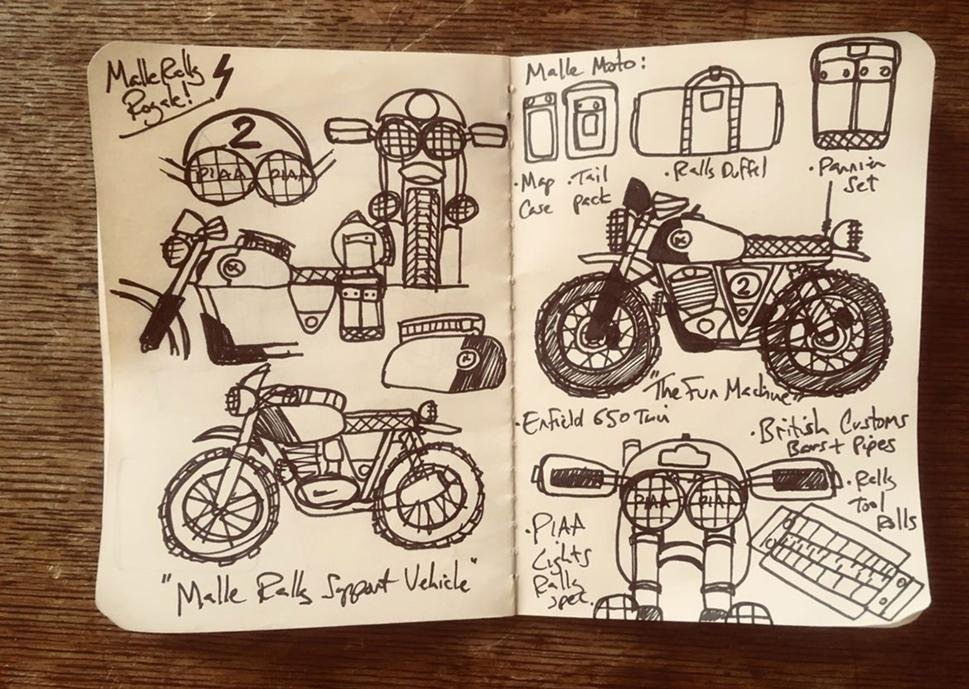 Malle Rally
Royale!
2
PIAA PIAA
"Malle Rally Support Vehicle"
Malle Moto:
·Map
Case
·Tail
pack
·Rally Duffel
·Pannier
Set
2
"The Fun Machine"
·Enfield 650 Twin
·British Customs
Bars + Pipes
PIAA PIAA
·Rally
Tool
Rolls
·PIAA
Lights
Rally
spec.